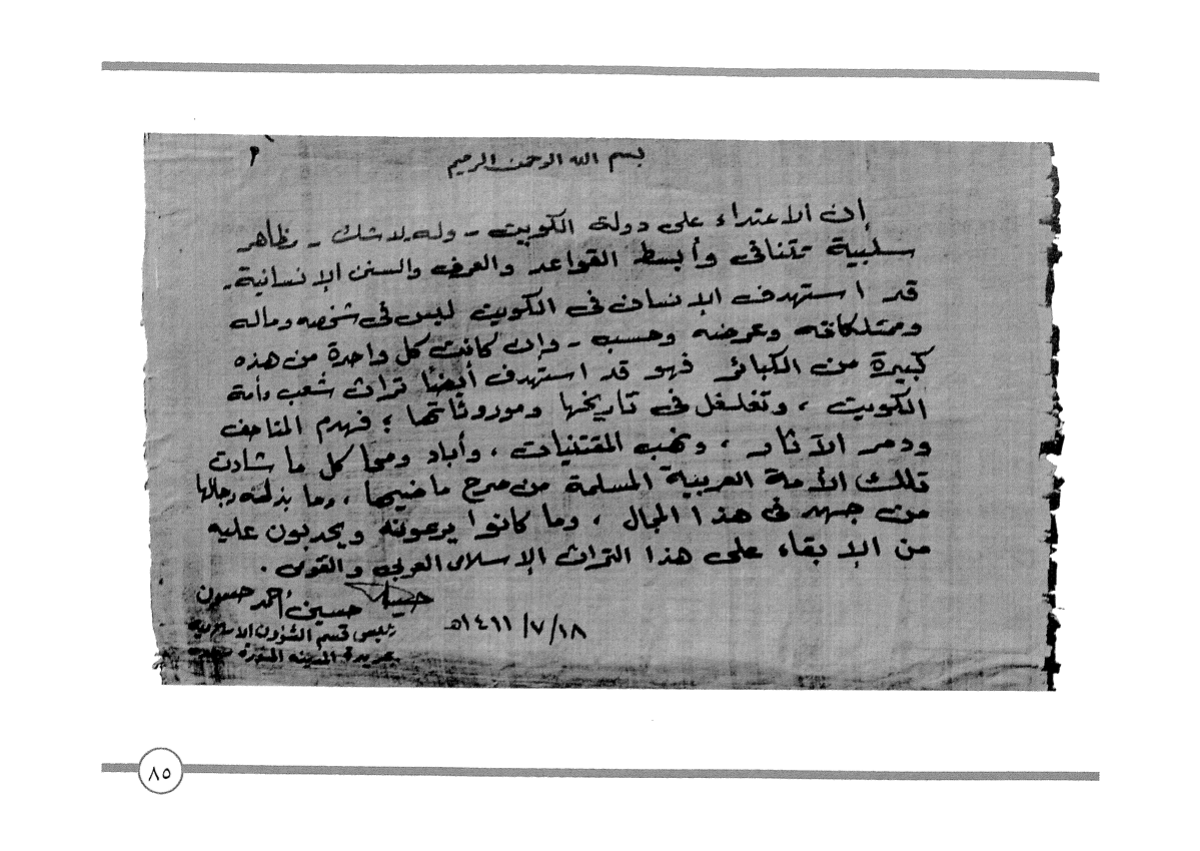 بسم الله الرحمن الرحيم
إن الاعتداء على دولة الكويت - وله بلا شك - مظاهر
سلبية تتنافى وأبسط القواعد والعرف والسنن الإنسانية.
قد استهدف الإنسان في الكويت ليس في شخصه وماله
وممتلكاته وعرضه وحسب - وإن كانت كل واحدة من هذه
كبيرة من الكبائر فهو قد استهدف أيضًا تراث شعب وأمة
الكويت ، وتغلغل في تاريخها وموروثاتها ؛ فهدم المتاحف
ودمر الآثار ، ونهب المقتنيات ، وأباد ومحا كل ما شادت
تلك الأمة العربية المسلمة من صرح ماضيها ، وما بذلته رجالها
من جهد في هذا المجال ، وما كانوا يرعونه ويحدبون عليه
من الإبقاء على هذا التراث الإسلامي العربي والقومي .
حسين أحمد حسون
١٤١١/٧/١٨هـ
رئيس قسم الشؤون الإسلامية
بجريدة المدينة المنورة
٨٥